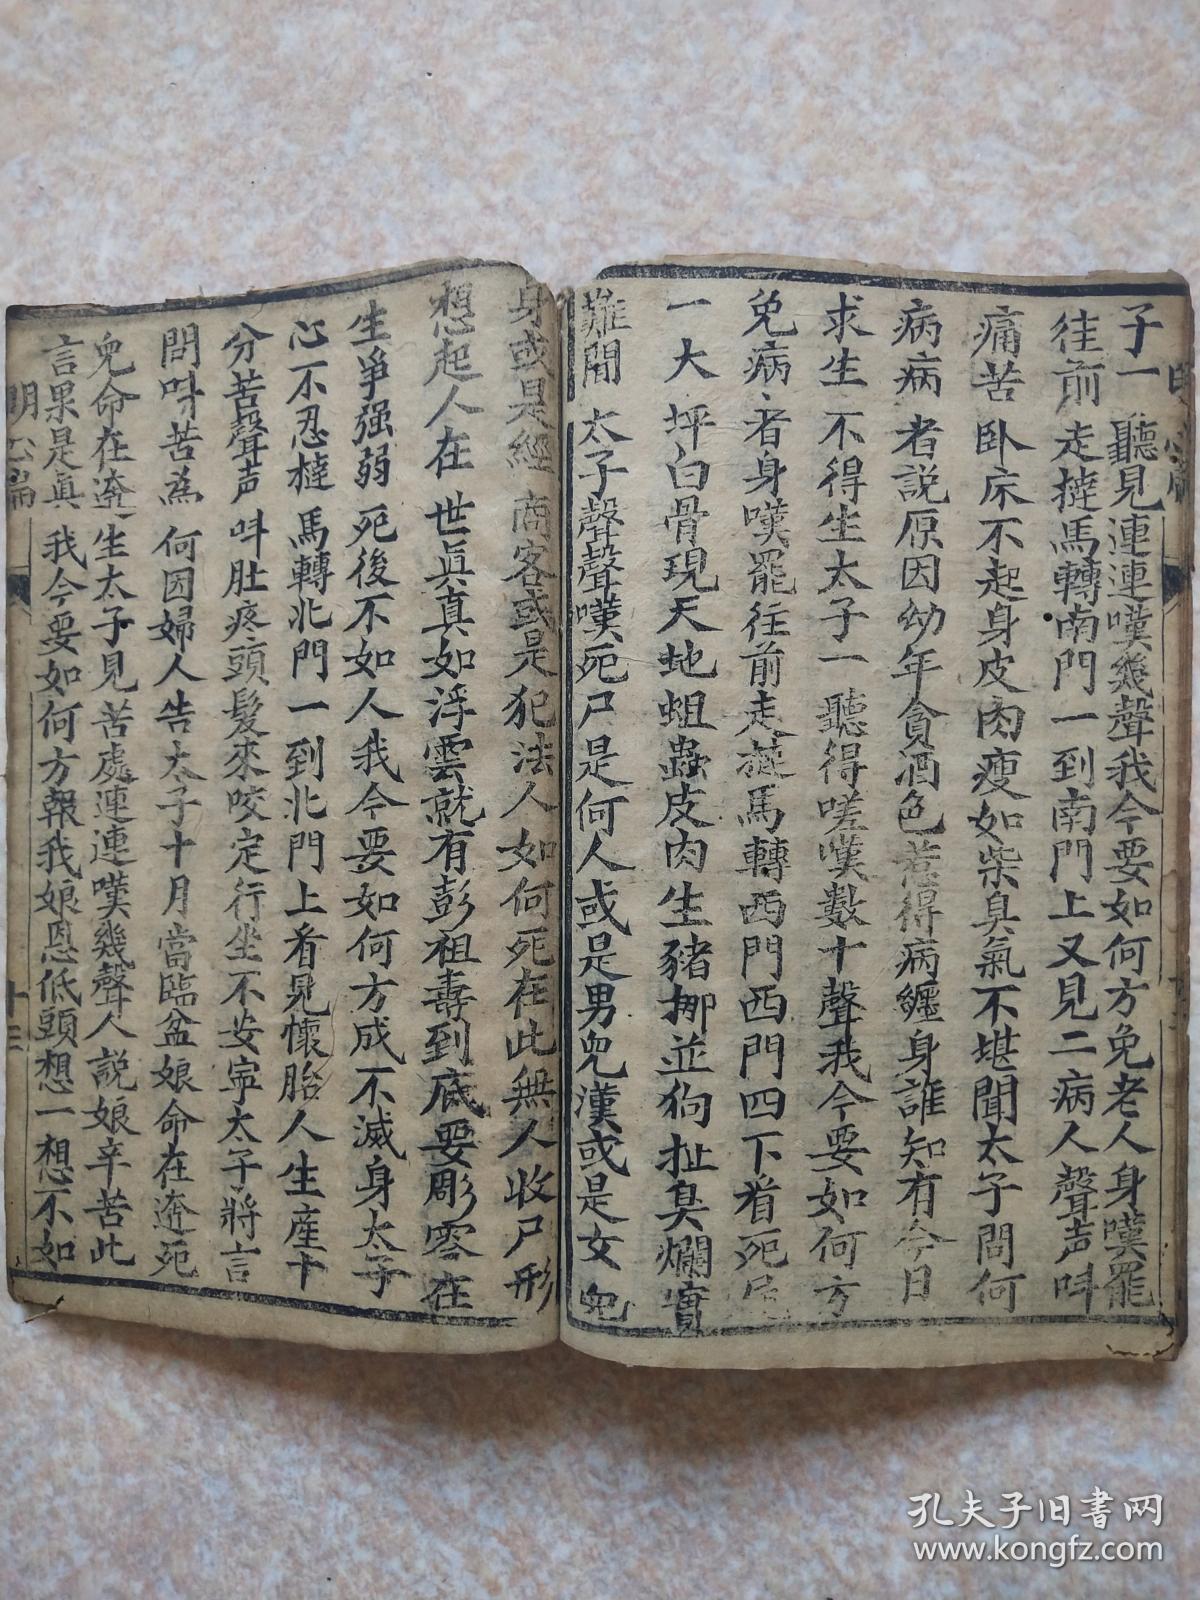 子一聽見連連嘆幾聲我今要如何方免老人身嘆罷
徃前走撻馬轉南門一到南門上又見二病人聲声叫
痛苦卧床不起身皮肉瘦如柴臭氣不堪聞太子問何
病病者說原因幼年貪酒色惹得病纏身誰知有今日
求生不得生太子一聽得嗟嘆數十聲我今要如何方
免病者身嘆罷往前走撻馬轉西門西門四下看死屍
一大坪白骨現天地蛆蟲皮肉生豬挷並狗扯臭爛實
難聞太子聲聲嘆死尸是何人或是男兒漢或是女兒
身或是經商客或是犯法人如何死在此無人收尸形
想起人在世眞真如浮雲就有彭祖壽到底要彫零在
生爭强弱死後不如人我今要如何方成不滅身太子
心不忍撻馬轉北門一到北門上看見懷胎人生産十
分苦聲声叫肚疼頭髮來咬定行坐不安寧太子將言
問叫苦為何因婦人告太子十月當臨盆娘命在逩死
兒命在逩生太子見苦處連連嘆幾聲人說娘辛苦此
言果是眞我今要如何方報我娘恩低頭想一想不如
明心篇
十三
孔夫子旧书网
www.kongfz.com